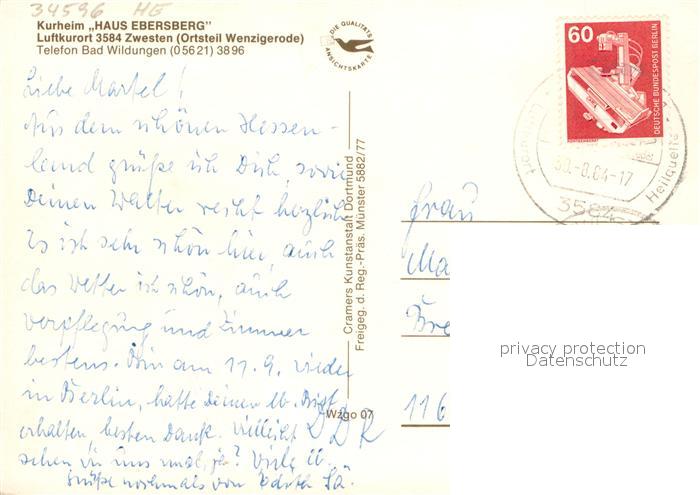 34596 HE
Kurheim „HAUS EBERSBERG"
Luftkurort 3584 Zwesten (Ortsteil Wenzigerode)
Telefon Bad Wildungen (0 56 21) 38 96
DIE QUALITÄTS
ANSICHTSKARTE
60
DEUTSCHE BUNDESPOST BERLIN
Luftkurort
Heilquelle
-17
3584
Liebe Martel!
Aus dem schönen Hessen-
land grüße ich Dich, sowie
Deinen Walter recht herzlich.
Es ist sehr schön hier, auch
das Wetter ist schön, auch
Verpflegung und Zimmer
bestens. Bin am 11.9. wieder
in Berlin, hatte Deinen lb. Brief
erhalten, besten Dank. Vielleicht
sehen wir uns mal, ja? Viele lb.
Grüße nochmals von Edith
Cramers Kunstanstalt Dortmund
Freigeg. d. Reg.-Präs. Münster 5882/77
Wzgo 07
Frau
Ma
Bre
116
DDR
privacy protection
Datenschutz